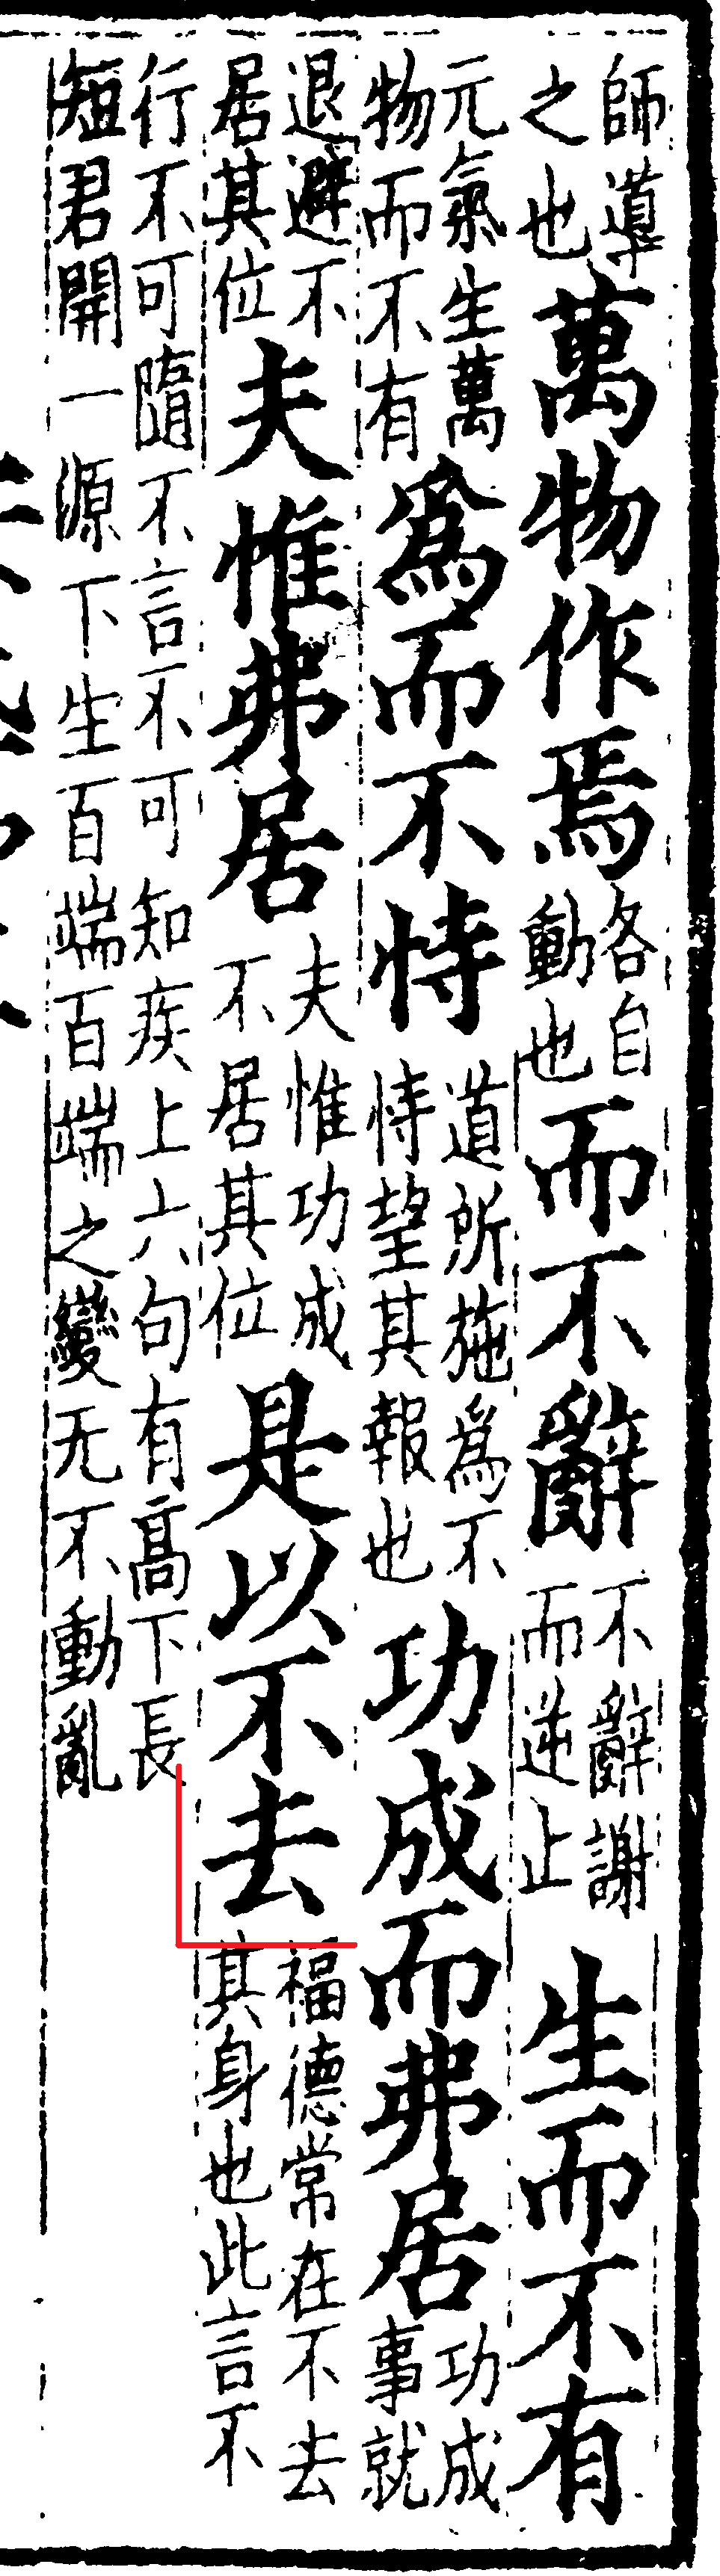 師導之也萬物作焉各自動也而不辭不辭謝而逆止生而不有
元氣生萬物而不有爲而不恃道所施爲不恃望其報也功成而弗居功成事就
退避不居其位夫惟弗居夫惟功成不居其位是以不去福德常在不去其身也此言不
行不可隨不言不可知疾上六句有高下長短君開一源下生百端百端之變无不動亂